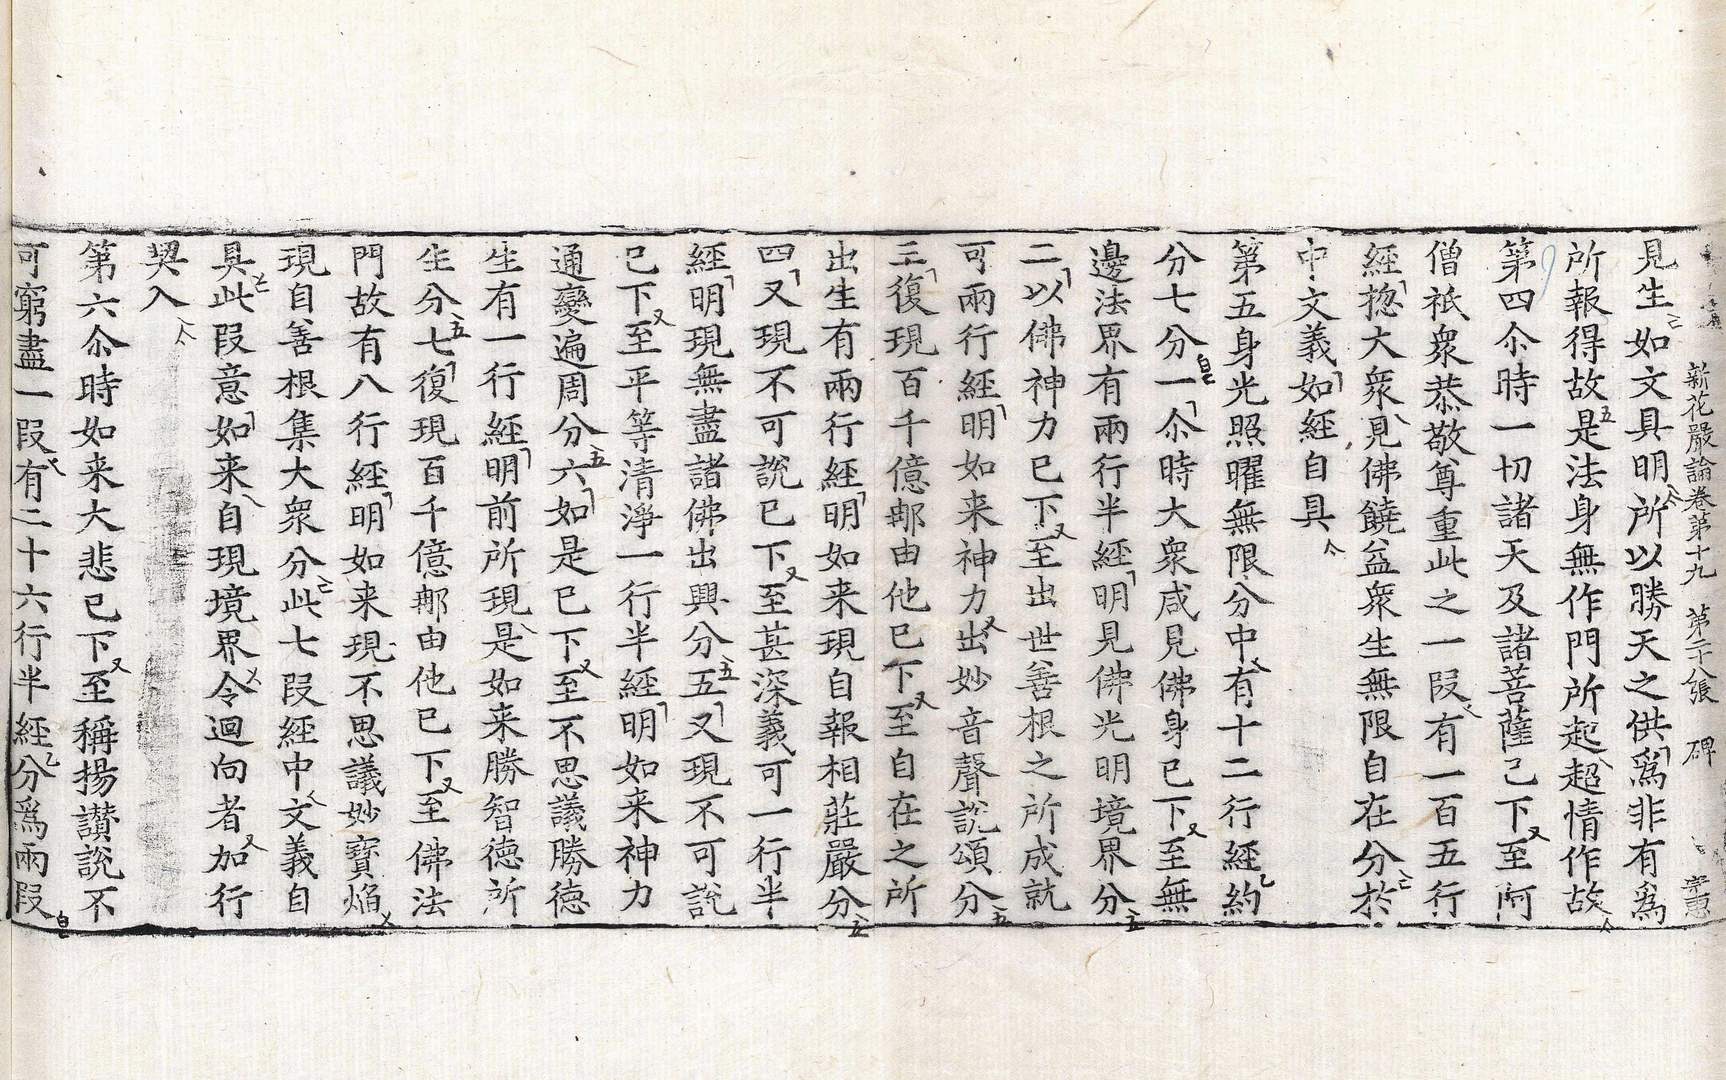 新花嚴論卷第十九 第二十八張 碑
見生如文具明所以勝天之供爲非有爲
所報得故是法身無作門所起超情作故
第四尒時一切諸天及諸菩薩已下至阿
僧祇衆恭敬尊重此之一叚有一百五行
經揔大衆見佛饒益衆生無限自在分於
中文義如經自具
第五身光照曜無限分中有十二行經約
分七分一尒時大衆咸見佛身已下至無
邊法界有兩行半經明見佛光明境界分
二以佛神力已下至出世善根之所成就
可兩行經明如来神力出妙音聲說頌分
三復現百千億郍由他已下至自在之所
出生有兩行經明如来現自報相莊嚴分
四又現不可說已下至甚深義可一行半
經明現無盡諸佛出興分五又現不可說
已下至平等清淨一行半經明如来神力
通變遍周分六如是已下至不思議勝德
生有一行經明前所現是如来勝智德所
生分七復現百千億郍由他已下至佛法
門故有八行經明如来現不思議妙寶焔
現自善根集大衆分此七叚經中文義自
具此叚意如来自現境界令迴向者加行
契入
第六尒時如来大悲已下至稱揚讃說不
可窮盡一叚有二十六行半經分爲兩叚